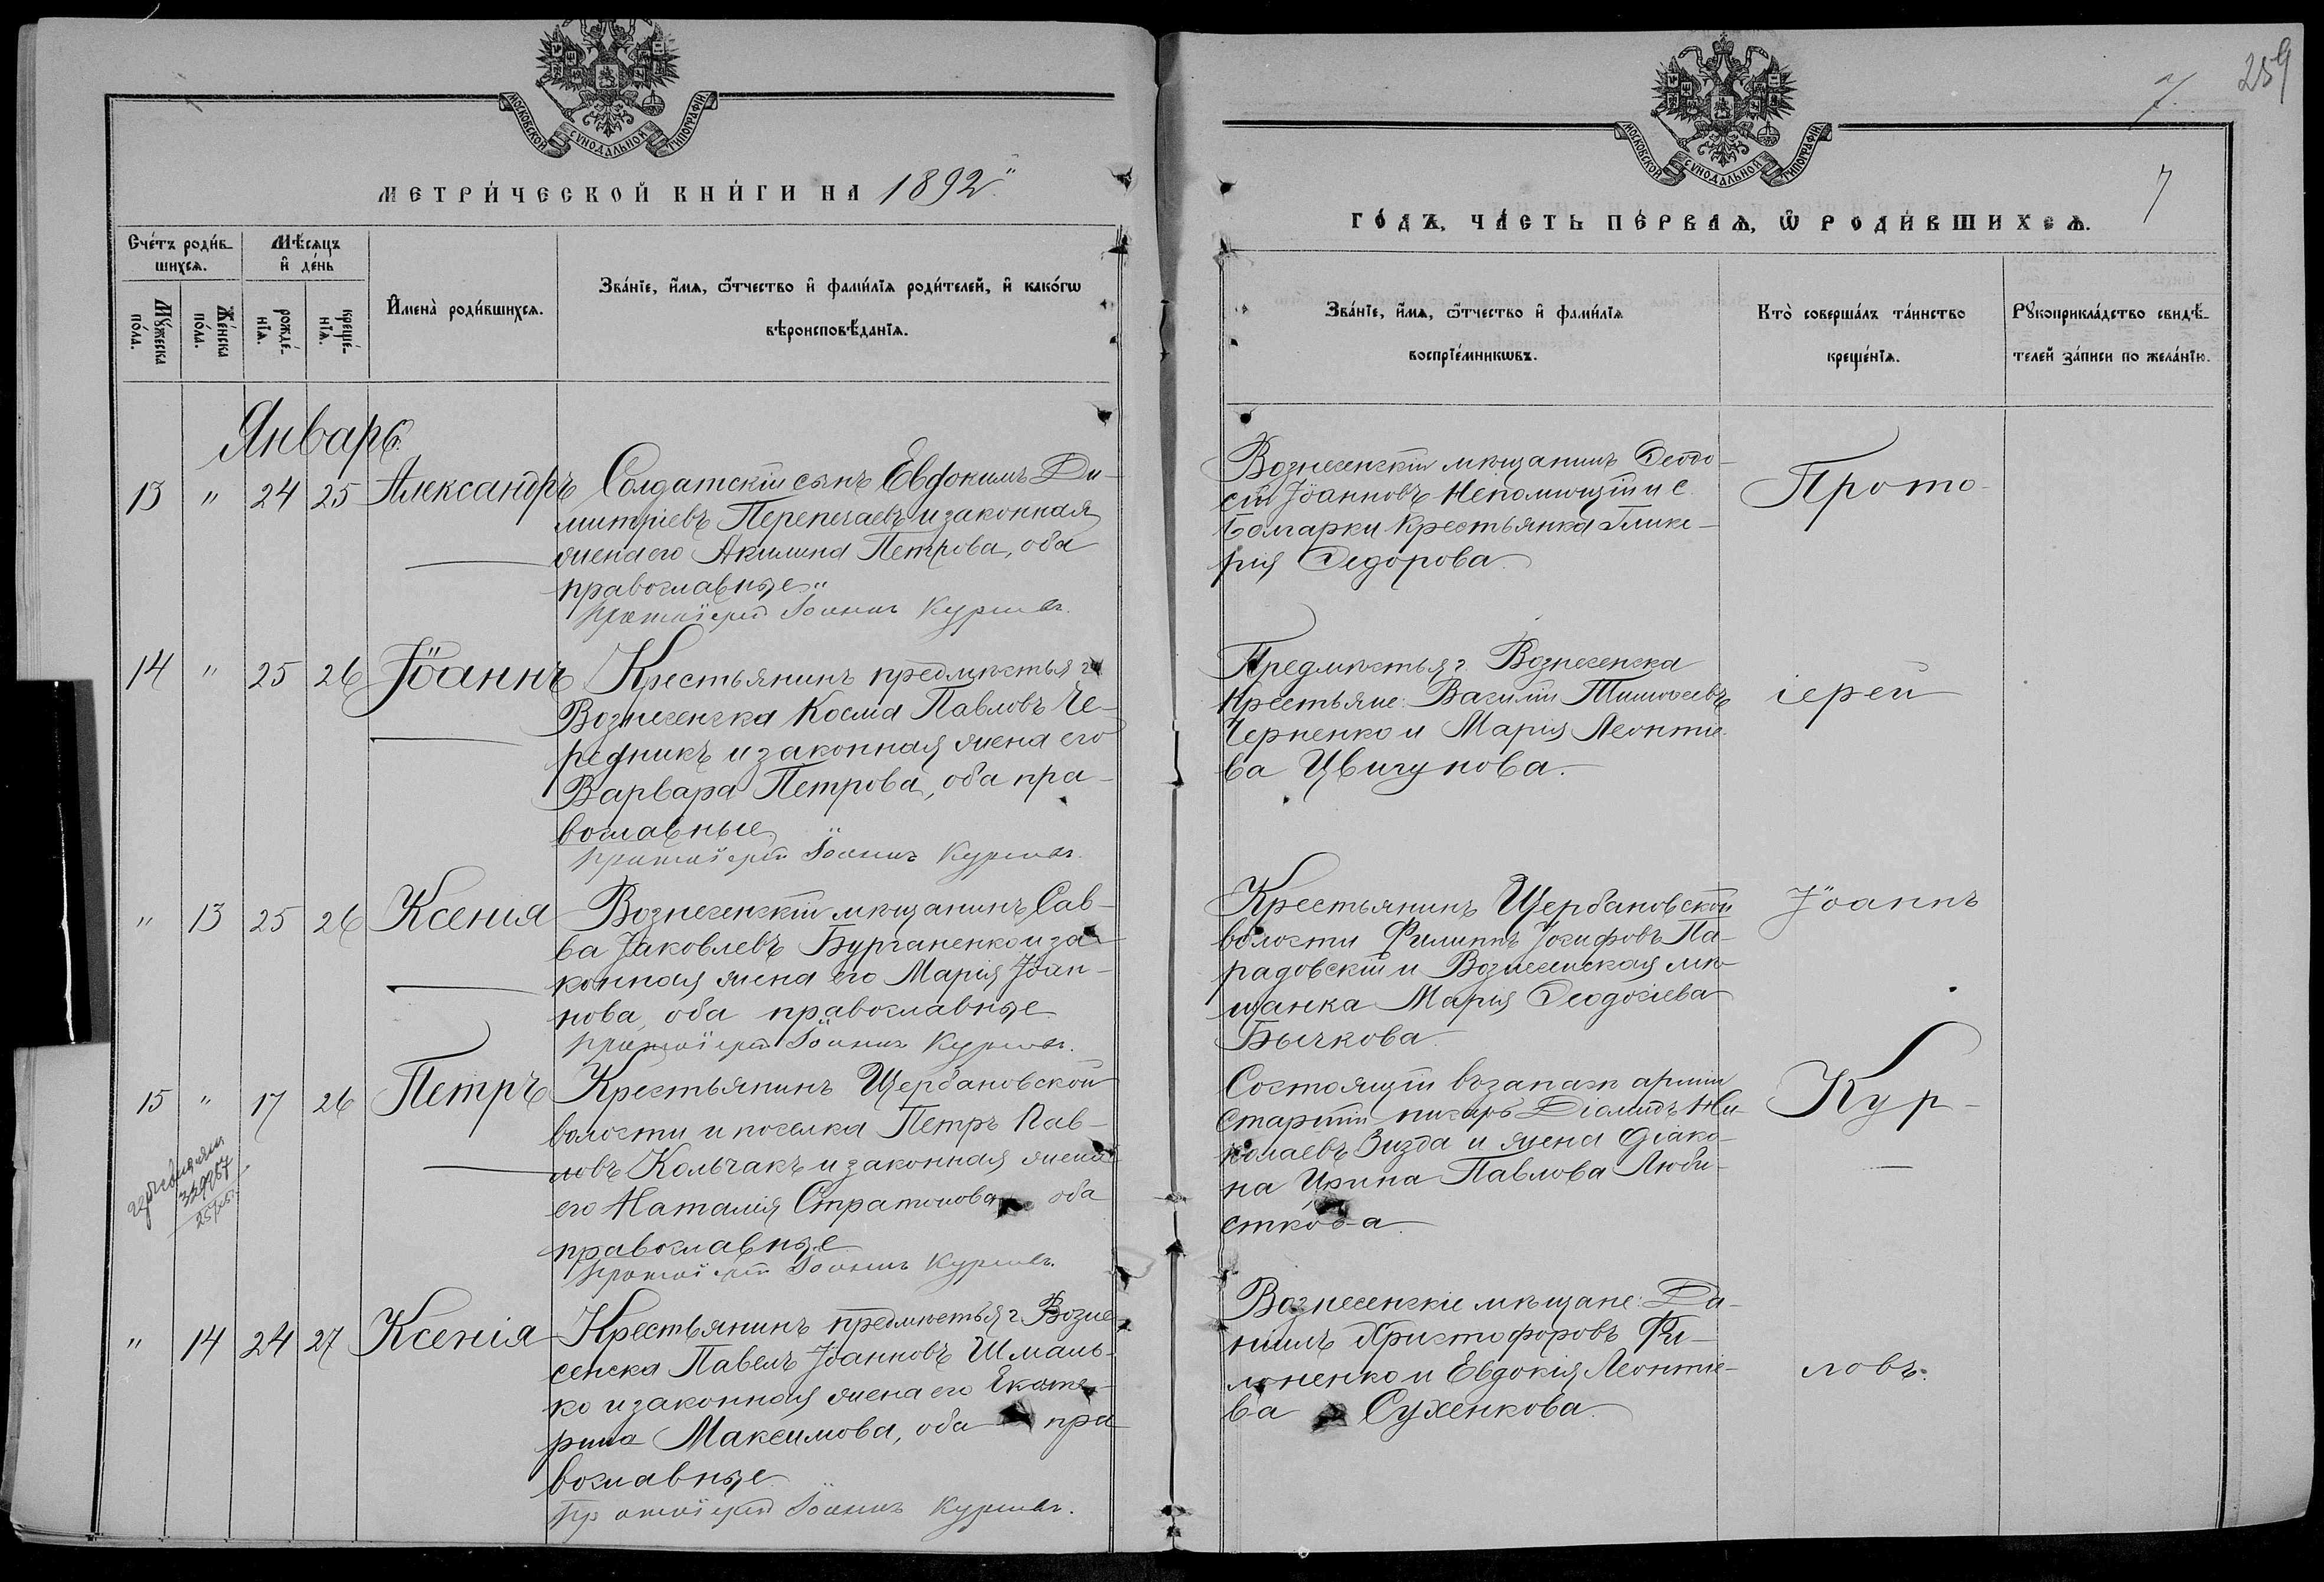 МОСКОВСКОЙ СѴНОДАЛЬНОЙ ТИПОГРАФІИ.
МЕТРИ́ЧЕСКОЙ КНИ́ГИ НА 1892"
Счéтъ роди́в-
шихсѧ.
Мѣ́сѧцъ
и҆ де́нь
Мꙋ́жеска
по́ла.
Же́нска
по́ла.
рожде́-
нїѧ.
креще́-
нїѧ.
И҆мена̀ роди́вшихсѧ.
Зва́нїе, и҆́мѧ, ѻ҆́тчество и҆ фами́лїѧ роди́телей, и҆ како́гѡ
вѣроисповѣ́данїѧ.
Январь.
13 " 24 25 Александръ Солдатскій сынъ Евфокимъ Ди-
митріевъ Перепечаевъ и законная
жена его Акилина Петрова, оба
православные"
Протоіерей Іоаннъ Курловъ.
14 " 25 26 Іоаннъ Крестьянинъ предмѣстья г.
Вознесенска Косма Павловъ Че-
редникъ и законная жена его
Варвара Петрова, оба пра-
вославные
Протоіерей Іоаннъ Курловъ.
" 13 25 26 Ксенія Вознесенскій мѣщанинъ Сав-
ва Іаковлевъ Бурганенко и за-
конная жена его Марія Іоан-
нова, оба православные
Протоіерей Іоаннъ Курловъ.
15 " 17 26 Петръ Крестьянинъ Щербановской
волости и поселка Петръ Пав-
ловъ Кольчакъ и законная жена
его Наталія Стратонова, оба
православные
Протоіерей Іоаннъ Курловъ.
" 14 24 27 Ксенія Крестьянинъ предмѣстья г. Возне-
сенска Павелъ Іоанновъ Шмаль-
ко и законная жена его Екате-
рина Максимова, оба пра-
вославные
Протоіерей Іоаннъ Курловъ.
259
7.
7
МОСКОВСКОЙ СѴНОДАЛЬНОЙ ТИПОГРАФІИ.
ГО́ДЪ, ЧА́СТЬ ПЕ́РВАѦ, Ѡ҆ РОДИ́ВШИХСѦ.
Зва́нїе, и҆́мѧ, ѻ҆́тчество и҆ фами́лїѧ
воспрїе́мникѡвъ.
Кто̀ соверша́лъ та́инство
креще́нїѧ.
Рꙋкоприкла́дство свидѣ́-
телей за́писи по жела́нїю.
Вознесенскій мѣщанинъ Ѳеодо-
сій Іоанновъ Непомнющій и с.
Болгарки крестьянка Глике-
рія Ѳедорова.
Предмѣстья г. Вознесенска
крестьяне: Василій Тимоѳеевъ
Черненко и Марія Леонтіе-
ва Цвигунова.
Крестьянинъ Щербановской
волости Филиппъ Іосифовъ Па-
радовскій и Вознесенская мѣ-
щанка Марія Ѳеодосіева
Бычкова.
Состоящій въ запасѣ арміи
старшій писарь Діомидъ Ни-
колаевъ Визда и жена діако-
на Ирина Павлова Люби-
сткова.
Вознесенскіе мѣщане: Да-
ніилъ Христофоровъ Фи-
лоненко и Евдокія Леонтіе-
ва Сухенкова.
Прото-
іерей
Іоаннъ
Кур-
ловъ.